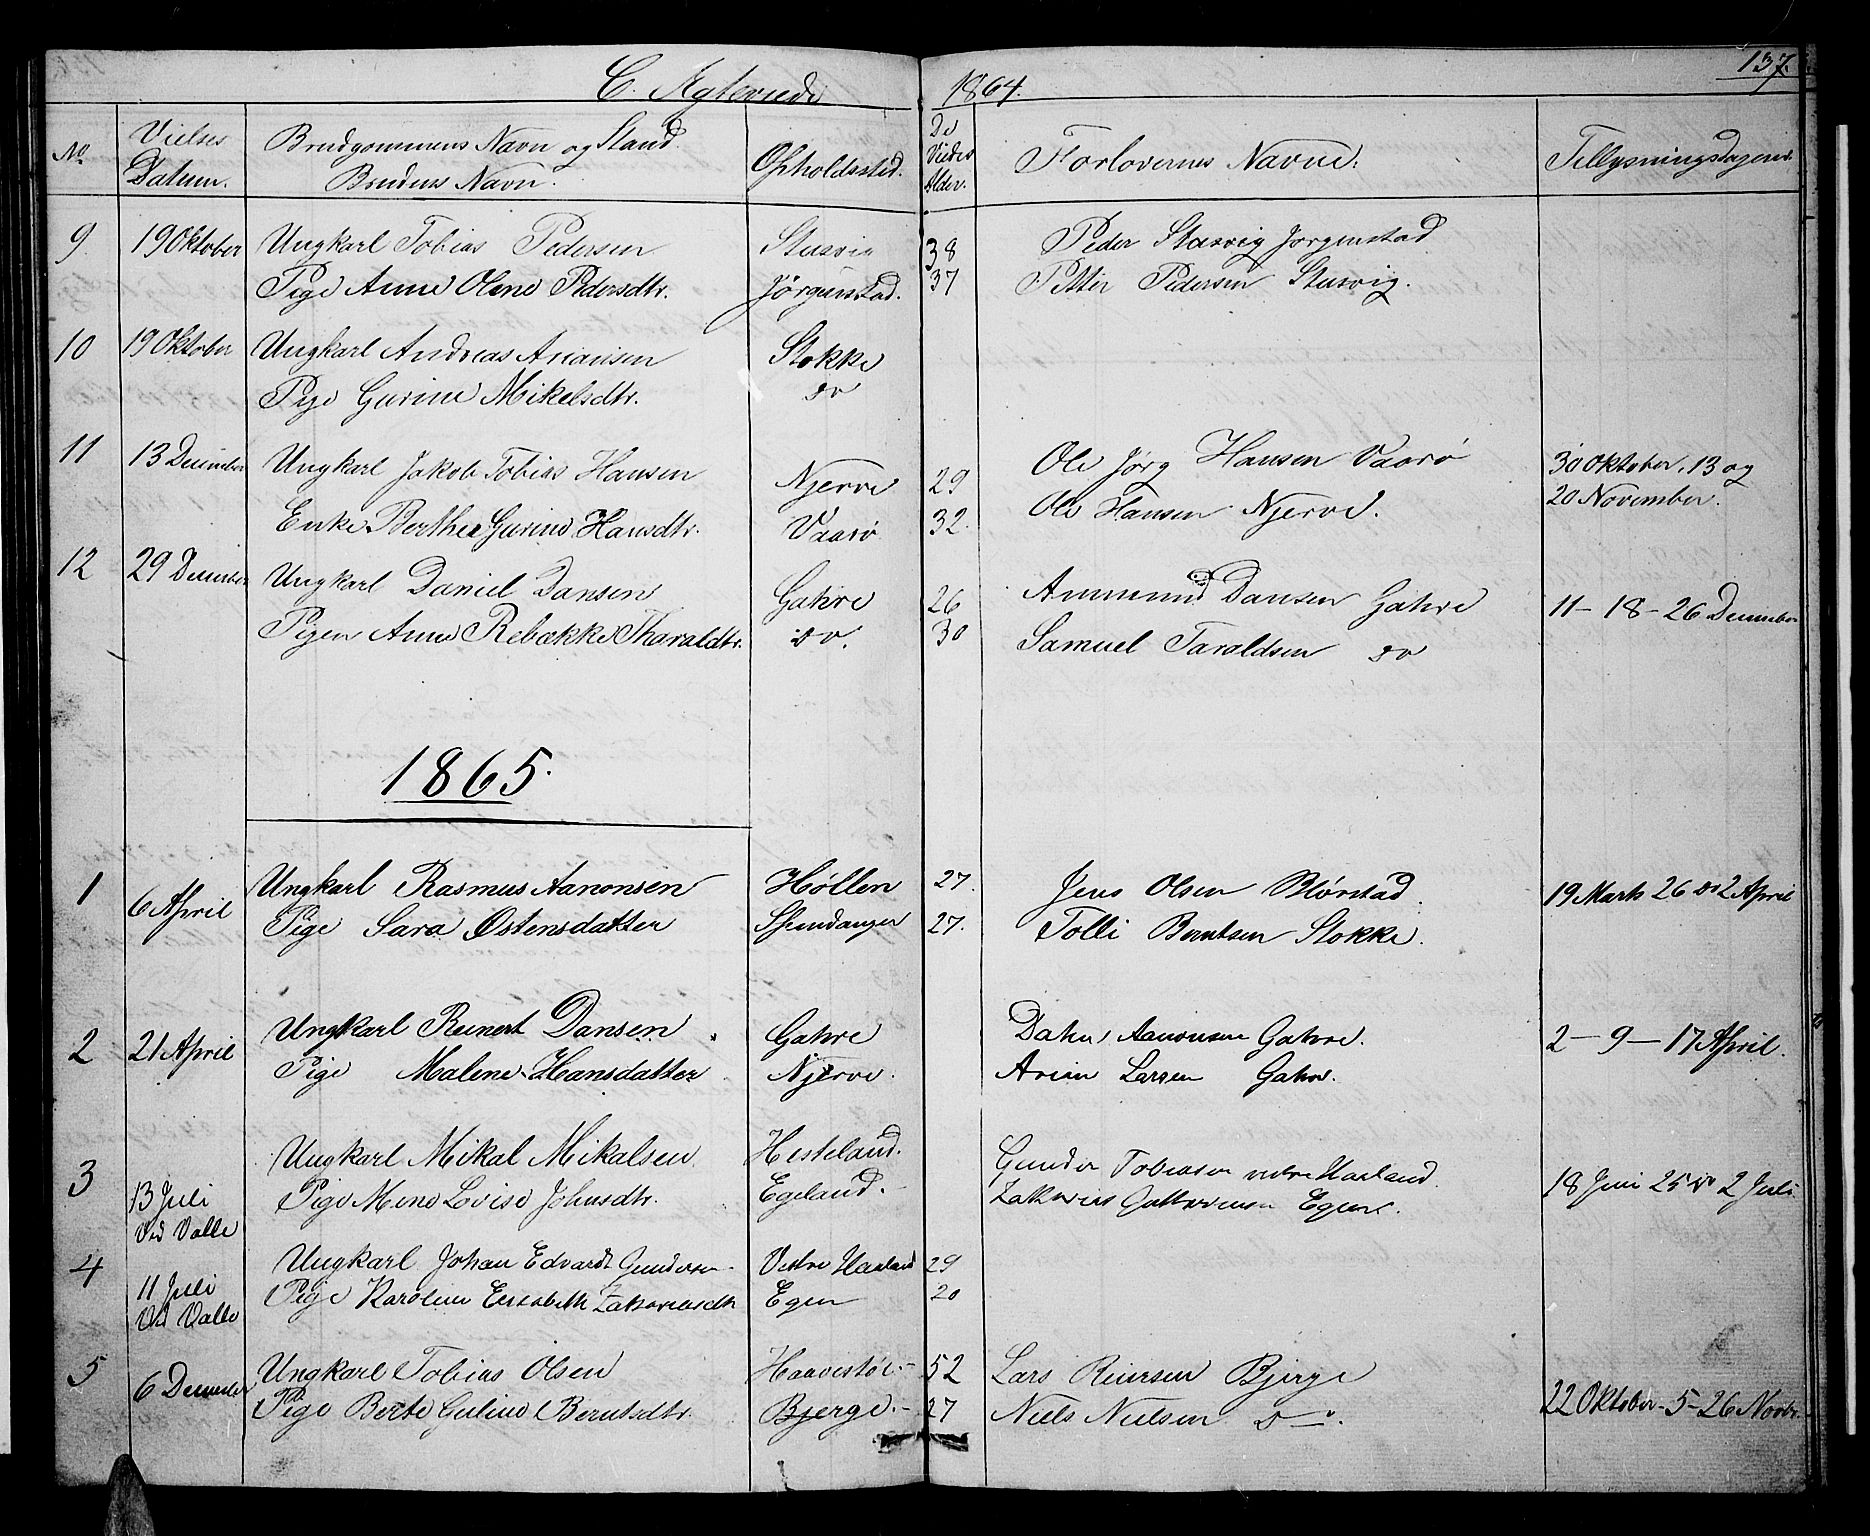 C. Ægteviede 1864. 137.
No Vielses Datum. Brudgommens Navn og Stand. Brudens Navn. Opholdssted. De Viedes Alder. Forlovernes Navne. Tillysningsdagene.
9. 19 Oktober Ungkarl Tobias Pedersen Stusvig 38 Peder Stusvig Jorgenstad
Pige Anne Olene Pedersdtr. Jörgenstad. 37 Petter Pedersen Stusvig.
10 19 Oktober Ungkarl Andreas Ariansen Stokke
Pige Gurine Mikelsdtr. do
11 13 December Ungkarl Jakob Tobias Hansen Njerve 29 Ole Jörg Hansen Vaarö 30 Oktober, 13 og
Enke Berthe Gurine Hansdtr. Vaarö 32. Ole Hansen Njerve. 20 November.
12 29 December Ungkarl Daniel Dansen Gahre 26 Ammund Dansen Gahre 11 - 18 - 26 December
Pigen Anne Rebække Tharaldtr. do. 30 Samuel Taraldsen do
1865.
1 6 April Ungkarl Rasmus Aanonsen Höllen 27. Jens Olsen Mörstad. 19 Marts 26 do 2 April
Pige Sara Østensdatter Spindanger 27. Tolli Berntsen Stokke.
2 21 April Ungkarl Reinert Dansen Gahre Aanonsen Gahre. 2 - 9 - 17 April.
Pige Malene Hansdatter Njerve. Arian Larsen Gahre.
3 13 Juli Ungkarl Mikal Mikalsen Hesteland. Gunder Tobiasen vestre Haaland. 18 Juni 25 do 2 Juli
Ved Valle Pige Mene Lovise Johnsdtr. Egeland. Zakarias Egen.
4 11 Juli Ungkarl Johan Edvardt Gundersen Vestre Haaland 29
Ved Valle Pige Karoline Elisabeth Zakariasdtr Egen 20
5 6 December Ungkarl Tobias Olsen Haavestöl. - 52 Lars Reiersen Bjerge 22 Oktober - 5 - 26 Novbr.
Pige Berte Guline Berntsdtr. Bjerge. - 27 Niels Nielsen do.